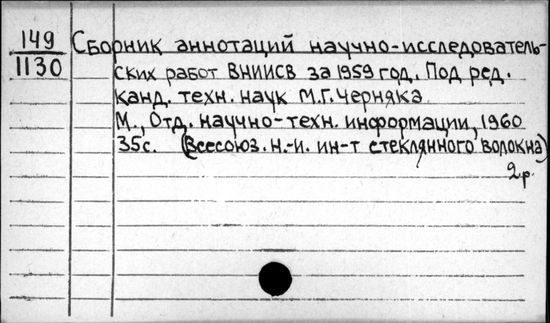 149
1130
Сборник аннотаций научно-исследователь-
ских работ ВНИИСВ за 1959 год. Под ред.
канд. техн. наук М.Г. Черняка
М., Отд. научно-техн. информации, 1960
35с. (Всесоюз. н.-и. ин-т стеклянного волокна)
2р.